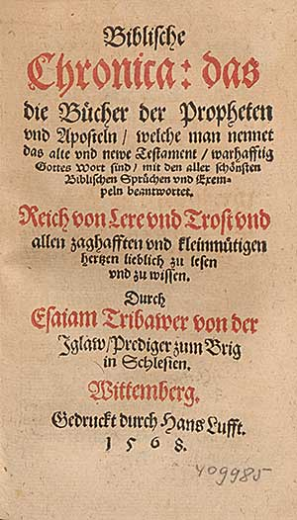 Biblische
Chronica: das
die Bücher der Propheten
vnd Aposteln / welche man nennet
das alte vnd newe Testament / warhafftig
Gottes Wort sind / mit den aller schönsten
Biblischen Sprüchen vnd Exem-
peln beantwortet.
Reich von Lere vnd Trost vnd
allen zaghafften vnd kleinmütigen
hertzen lieblich zu lesen
vnd zu wissen.
Durch
Esaiam Tribawer von der
Iglaw / Prediger zum Brig
in Schlesien.
Wittemberg.
Gedruckt durch Hans Lufft.
1568.
409985